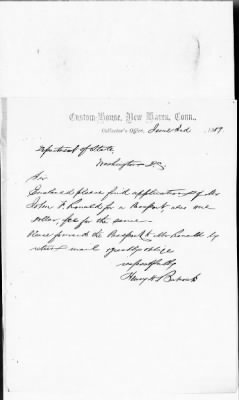 Custom-House, New Haven, Conn.,
Collector's Office, June 3rd 1889
Department of State,
Washington D.C.
Sir
Enclosed please find application of Mr
John F. Ronald for a Passport, also one
dollar, fee for the same.
Please forward the Passport to Mr Ronald by
return mail & greatly oblige
respectfully,
Henry H. Babcock